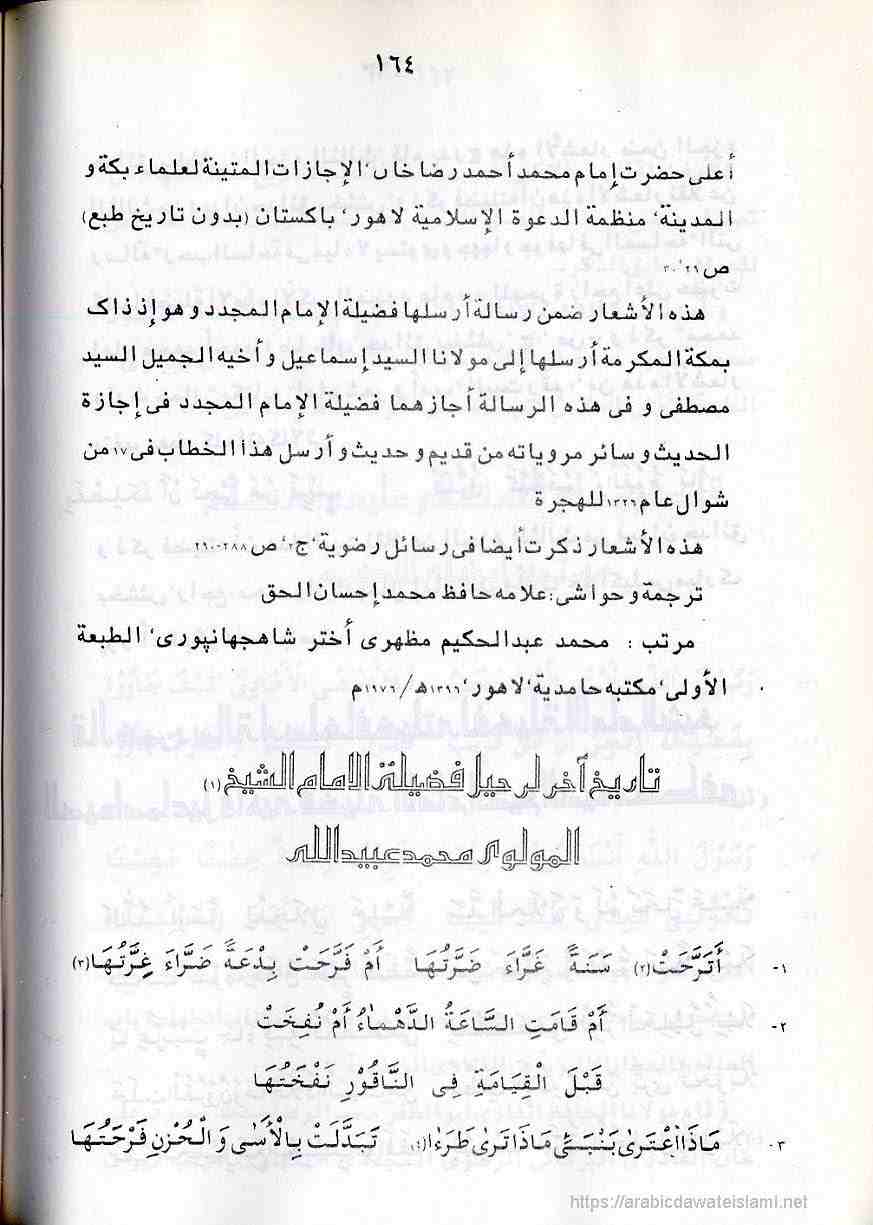 ١٦٤
أعلى حضرت إمام محمد أحمد رضا خان، الإجازات المتينة لعلماء بكة و
المدينة، منظمة الدعوة الإسلامية لاهور، باكستان (بدون تاريخ طبع)
ص ٢٦، ٣٠
هذه الأشعار ضمن رسالة أرسلها فضيلة الإمام المجدد و هو إذ ذاك
بمكة المكرمة أرسلها إلى مولانا السيد إسماعيل و أخيه الجميل السيد
مصطفى و فى هذه الرسالة أجازهما فضيلة الإمام المجدد فى إجازة
الحديث و سائر مروياته من قديم و حديث و أرسل هذا الخطاب فى ١٧ من
شوال عام ١٣٢٦ للهجرة
هذه الأشعار ذكرت أيضا فى رسائل رضوية، ج٢، ص ٢٨٨-٢٩٠
ترجمة و حواشى: علامه حافظ محمد إحسان الحق
مرتب : محمد عبدالحكيم مظهرى أختر شاهجهانپورى، الطبعة
الأولى، مكتبه حامدية، لاهور، ١٣٩٦ھ/ ١٩٧٦م
تاريخ آخر لرحيل فضيلة الامام الشيخ (١)
المولوى محمد عبيد الله
١- أَتَرَّحَتْ (٢) سَنَةً غَرَّاءَ ضَرَّتُهَا أَمْ فَرَّحَتْ بِدْعَةً ضَرَّاءَ غِرَّتُهَا (٣)
٢- أَمْ قَامَتِ السَّاعَةُ الدَّهْمَاءُ أَمْ نُفِخَتْ
قَبْلَ الْقِيَامَةِ فِى النَّاقُوْرِ نَفْخَتُهَا
٣- مَاذَا اعْتَرٰى يَنْبَئِى مَاذَا تَرٰى طَرَءَا (٤) تَبَدَّلَتْ بِالْأَسٰى وَ الْحُزْنِ فَرْحَتُهَا
https://arabicdawateislami.net